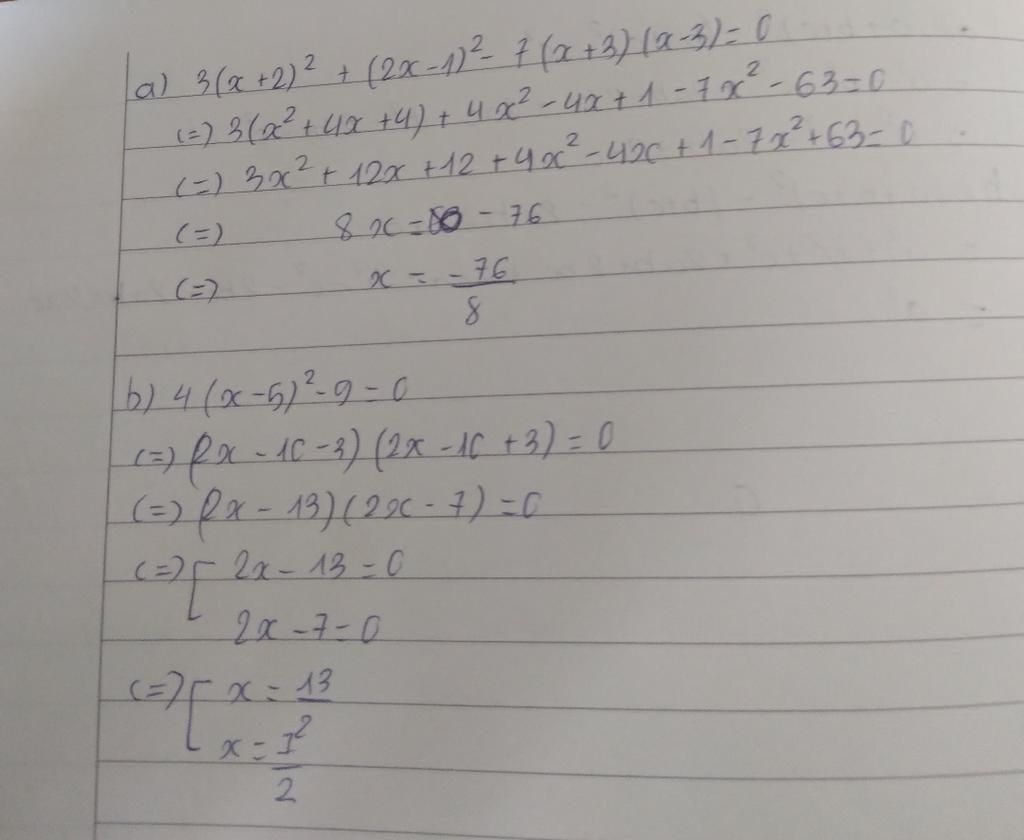 a) 3(x+2)² + (2x-1)² - 7(x+3)(x-3) = 0
(=) 3(x² + 4x + 4) + 4x² - 4x + 1 - 7x² - 63 = 0
(=) 3x² + 12x + 12 + 4x² - 4x + 1 - 7x² + 63 = 0
(=) 8x = - 76
(=) x = -76/8
b) 4(x-5)² - 9 = 0
(=) (2x - 10 - 3)(2x - 10 + 3) = 0
(=) (2x - 13)(2x - 7) = 0
(=) [ 2x - 13 = 0
2x - 7 = 0
(=) [ x = 13/2
x = 7/2